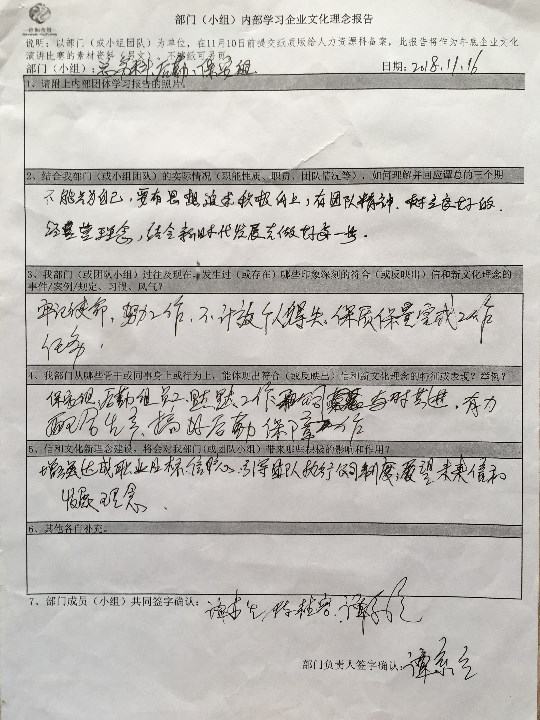 部门（小组）内部学习企业文化理念报告
说明：以部门（或小组团队）为单位，在11月10日前提交纸质版给人力资源科备案，此报告将作为年底企业文化
演讲比赛的素材资料
部门（小组）： 后勤、保安组 日期：2018.11.16
1、请附上内部团体学习报告的照片。
2、结合我部门（或小组团队）的实际情况（职能性质、职责、团队情况等），如何理解并回应谭总的三个期
不能光为自己，要有思想追求积极向上，有团队精神，树立良好的
经营理念，结合新时代发展走做好每一步。
3、我部门（或团队小组）过往及现在，发生过（或存在）哪些印象深刻的符合（或反映出）信和新文化理念的
事件/案例/规定、习惯、风气？
牢记使命，努力工作，不计较个人得失，保质保量完成工作
任务，
4、我部门从哪些骨干或同事身上或行为上，能体现出符合（或反映出）信和新文化理念的特征或表现？举例？
保安组，后勤组员工，默默工作 与时共进，有力
配合生产，搞好后勤保障工作
5、信和文化新理念建设，将会对我部门（或团队小组）带来哪些积极的影响和作用？
增强达成职业目标信心，引导团队执行公司制度，展望未来信和
发展理念
6、其他各自补充。
7、部门成员（小组）共同签字确认：
部门负责人签字确认：